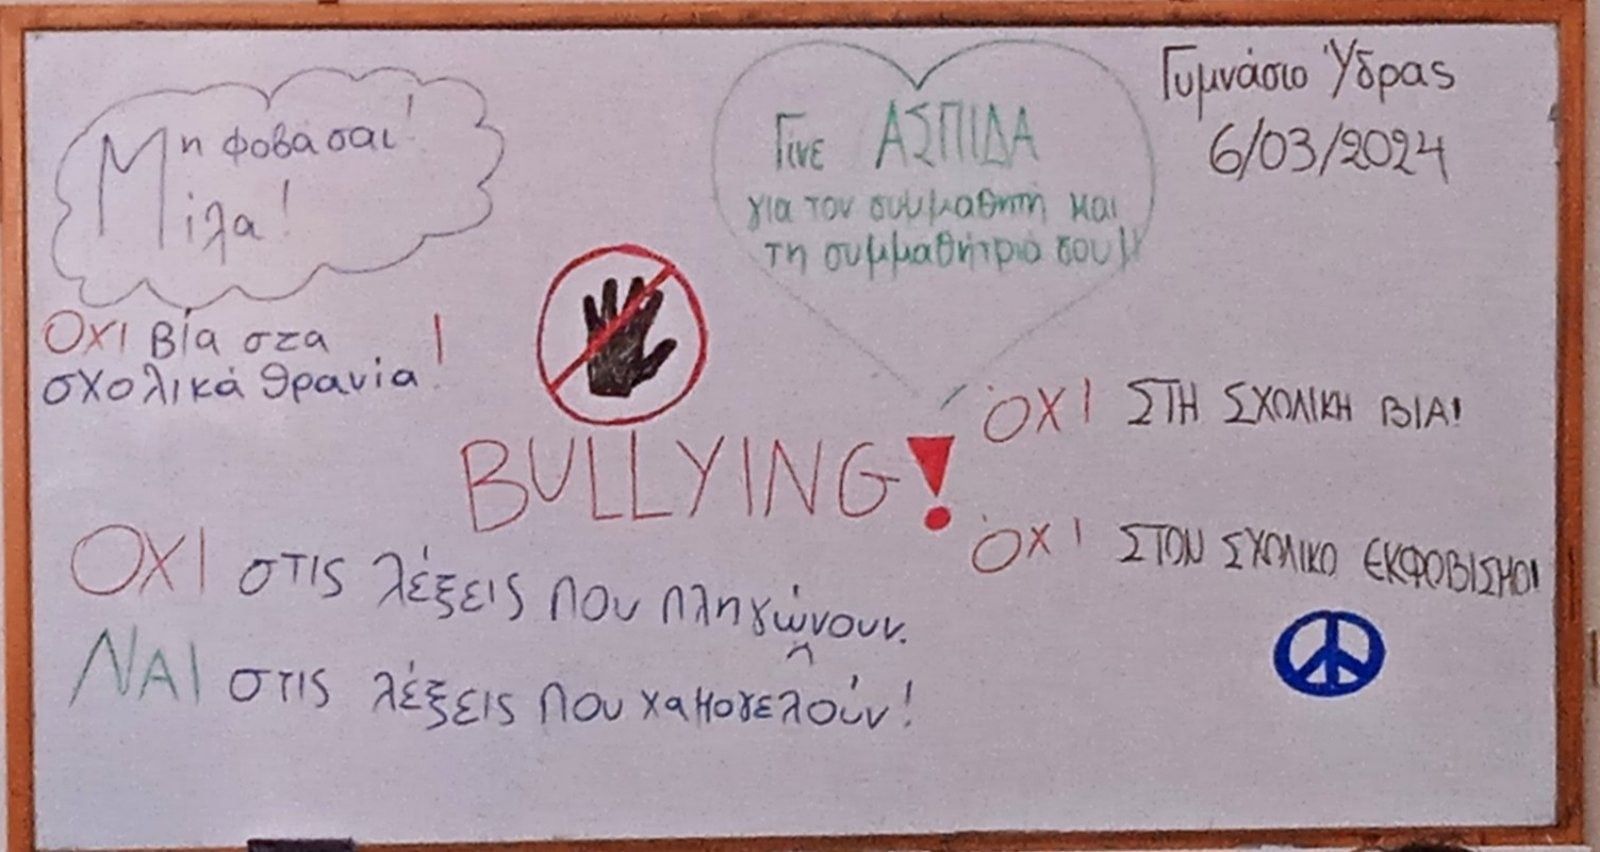 Μη φοβάσαι!
Μίλα!
Γίνε ΑΣΠΙΔΑ
για τον συμμαθητή και
τη συμμαθήτριά σου!!
Γυμνάσιο Ύδρας
6/03/2024
ΟΧΙ βία στα
σχολικά θρανία!
BULLYING!
ΌΧΙ ΣΤΗ ΣΧΟΛΙΚΗ ΒΙΑ!
ΌΧΙ ΣΤΟΝ ΣΧΟΛΙΚΟ ΕΚΦΟΒΙΣΜΟ!
ΟΧΙ στις λέξεις που πληγώνουν.
ΝΑΙ στις λέξεις που χαμογελούν!